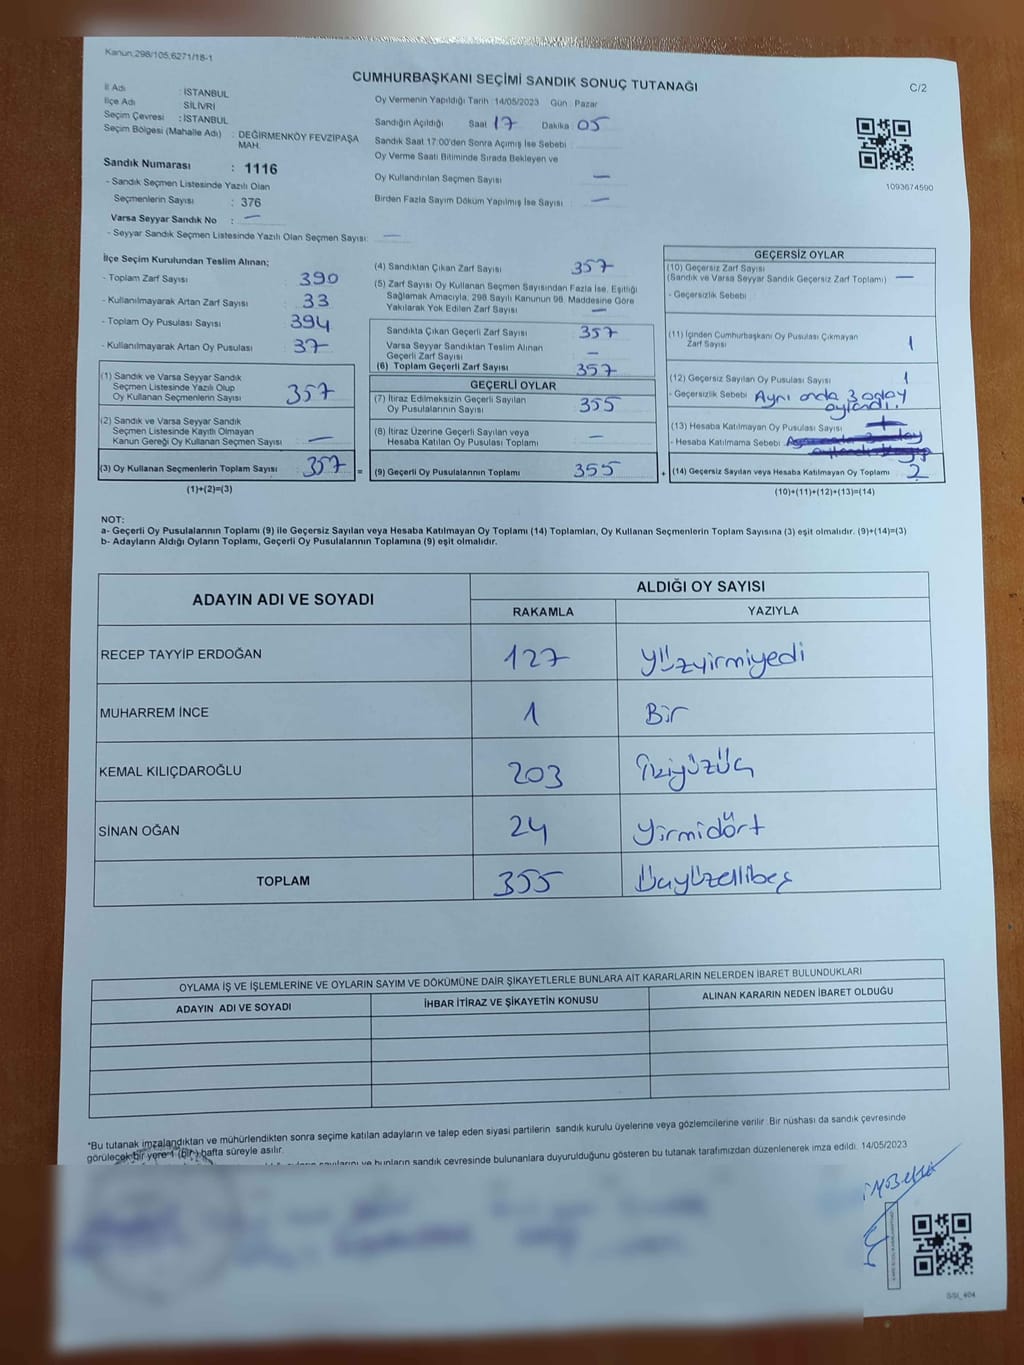 Kanun.298/105,6271/18-1
CUMHURBAŞKANI SEÇİMİ SANDIK SONUÇ TUTANAĞI
C/2
İl Adı : İSTANBUL
İlçe Adı SİLİVRİ
Seçim Çevresi : İSTANBUL
Seçim Bölgesi (Mahalle Adı) : DEĞİRMENKÖY FEVZİPAŞA MAH.
Sandık Numarası : 1116
- Sandık Seçmen Listesinde Yazılı Olan
Seçmenlerin Sayısı : 376
Varsa Seyyar Sandık No : —
- Seyyar Sandık Seçmen Listesinde Yazılı Olan Seçmen Sayısı: —
Oy Vermenin Yapıldığı Tarih :14/05/2023 Gün : Pazar
Sandığın Açıldığı Saat 17 Dakika 05
Sandık Saat 17:00'den Sonra Açımış İse Sebebi
Oy Verme Saati Bitiminde Sırada Bekleyen ve
Oy Kullandırılan Seçmen Sayısı —
Birden Fazla Sayım Döküm Yapılmış İse Sayısı : —
1093674590
İlçe Seçim Kurulundan Teslim Alınan;
- Toplam Zarf Sayısı : 390
- Kullanılmayarak Artan Zarf Sayısı : 33
- Toplam Oy Pusulası Sayısı : 394
- Kullanılmayarak Artan Oy Pusulası : 37
(1) Sandık ve Varsa Seyyar Sandık
Seçmen Listesinde Yazılı Olup
Oy Kullanan Seçmenlerin Sayısı : 357
(2) Sandık ve Varsa Seyyar Sandık
Seçmen Listesinde Kayıtlı Olmayan
Kanun Gereği Oy Kullanan Seçmen Sayısı : —
(3) Oy Kullanan Seçmenlerin Toplam Sayısı : 357 =
(1)+(2)=(3)
(4) Sandıktan Çıkan Zarf Sayısı : 357
(5) Zarf Sayısı Oy Kullanan Seçmen Sayısından Fazla İse, Eşitliği
Sağlamak Amacıyla, 298 Sayılı Kanunun 98. Maddesine Göre
Yakılarak Yok Edilen Zarf Sayısı : —
Sandıkta Çıkan Geçerli Zarf Sayısı : 357
Varsa Seyyar Sandıktan Teslim Alınan
Geçerli Zarf Sayısı : —
(6) Toplam Geçerli Zarf Sayısı : 357
GEÇERLİ OYLAR
(7) İtiraz Edilmeksizin Geçerli Sayılan
Oy Pusulalarının Sayısı : 355
(8) İtiraz Üzerine Geçerli Sayılan veya
Hesaba Katılan Oy Pusulası Toplamı : —
(9) Geçerli Oy Pusulalarının Toplamı : 355 +
GEÇERSİZ OYLAR
(10) Geçersiz Zarf Sayısı
(Sandık ve Varsa Seyyar Sandık Geçersiz Zarf Toplamı) : —
- Geçersizlik Sebebi :
(11) İçinden Cumhurbaşkanı Oy Pusulası Çıkmayan
Zarf Sayısı : 1
(12) Geçersiz Sayılan Oy Pusulası Sayısı : 1
- Geçersizlik Sebebi : Aynı anda 3 aday
oylandı.
(13) Hesaba Katılmayan Oy Pusulası Sayısı :
- Hesaba Katılmama Sebebi :
(14) Geçersiz Sayılan veya Hesaba Katılmayan Oy Toplamı : 2
(10)+(11)+(12)+(13)=(14)
NOT:
a- Geçerli Oy Pusulalarının Toplamı (9) ile Geçersiz Sayılan veya Hesaba Katılmayan Oy Toplamı (14) Toplamları, Oy Kullanan Seçmenlerin Toplam Sayısına (3) eşit olmalıdır. (9)+(14)=(3)
b- Adayların Aldığı Oyların Toplamı, Geçerli Oy Pusulalarının Toplamına (9) eşit olmalıdır.
ADAYIN ADI VE SOYADI ALDIĞI OY SAYISI
RAKAMLA YAZIYLA
RECEP TAYYİP ERDOĞAN 127 Yüzyirmiyedi
MUHARREM İNCE 1 Bir
KEMAL KILIÇDAROĞLU 203 İkiyüzüç
SİNAN OĞAN 24 Yirmidört
TOPLAM 355 Üçyüzellibeş
OYLAMA İŞ VE İŞLEMLERİNE VE OYLARIN SAYIM VE DÖKÜMÜNE DAİR ŞİKAYETLERLE BUNLARA AİT KARARLARIN NELERDEN İBARET BULUNDUKLARI
ADAYIN ADI VE SOYADI İHBAR İTİRAZ VE ŞİKAYETİN KONUSU ALINAN KARARIN NEDEN İBARET OLDUĞU
*Bu tutanak imzalandıktan ve mühürlendikten sonra seçime katılan adayların ve talep eden siyasi partilerin sandık kurulu üyelerine veya gözlemcilerine verilir. Bir nüshası da sandık çevresinde
görülecek bir yere 1 (bir) hafta süreyle asılır.
ve bunların sandık çevresinde bulunanlara duyurulduğunu gösteren bu tutanak tarafımızdan düzenlenerek imza edildi. 14/05/2023